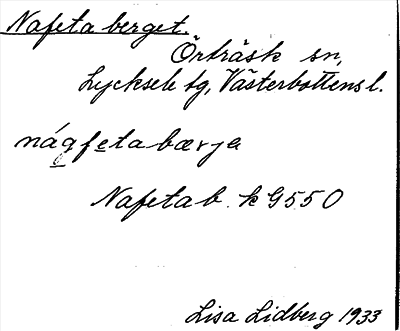 Nafeta berget.
Örträsk sn,
Lycksele tg, Västerbottens l.
nágfetabærja
Nafetab. k G550
Lisa Lidberg 1933